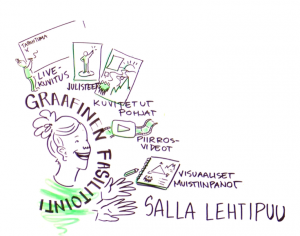 TAPAHTUMA
LIVE-
KUVITUS
JULISTEET
KUVITETUT
POHJAT
GRAAFINEN FASILITOINTI
PIIRROS-
VIDEOT
VISUAALISET
MUISTIINPANOT
SALLA LEHTIPUU